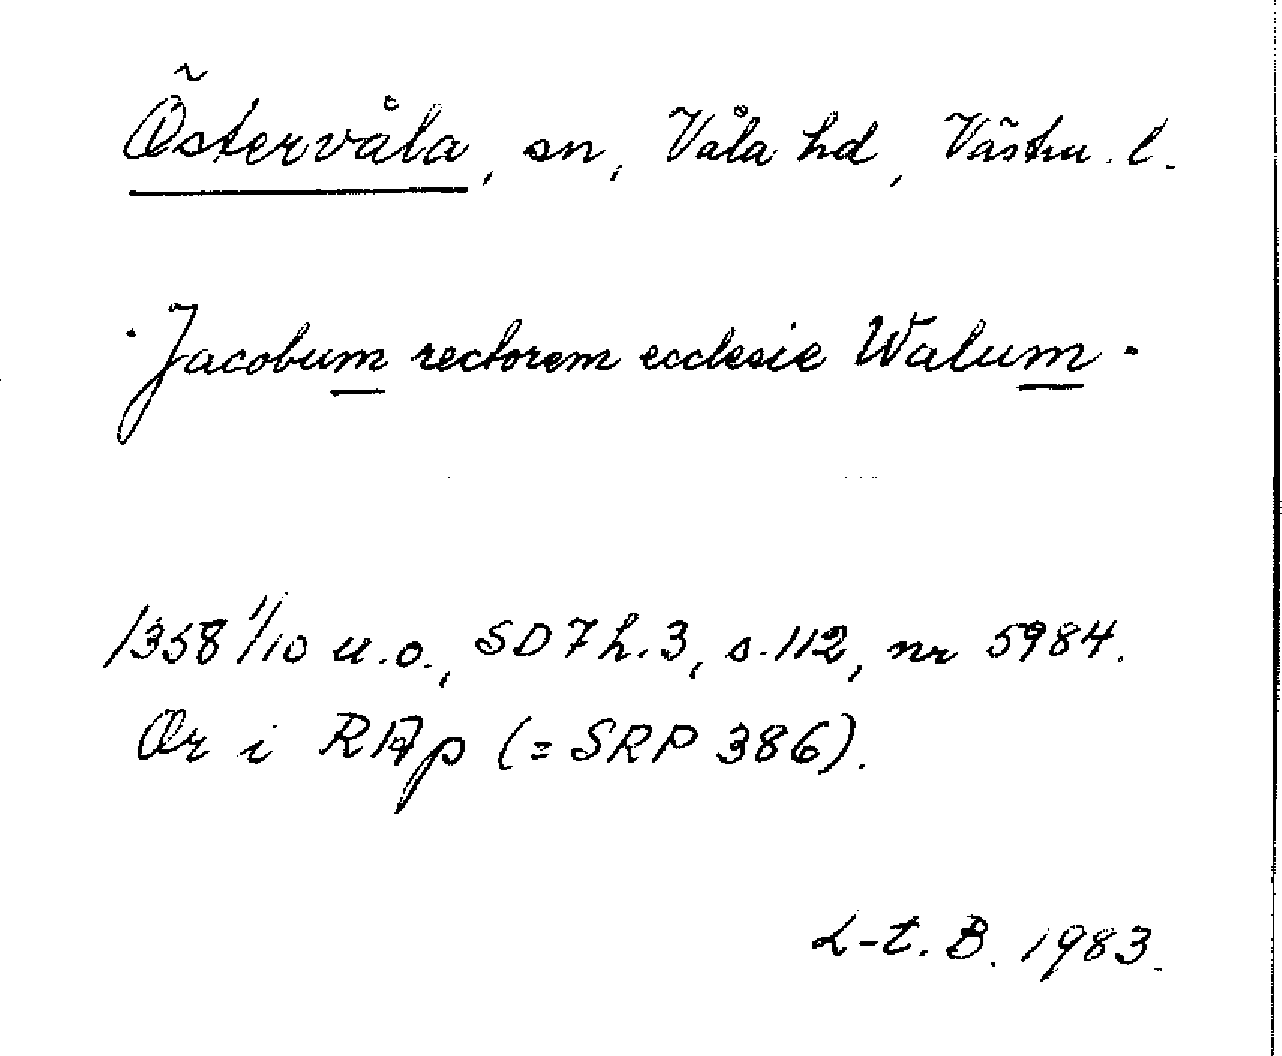 Östervåla, sn, Våla hd, Västm. l.
·Jacobum rectorem ecclesie Walum·
1358 1/10 u.o., SD 7 h.3, s.112, nr 5984.
Or i RAp (= SRP 386).
L-t. B. 1983.